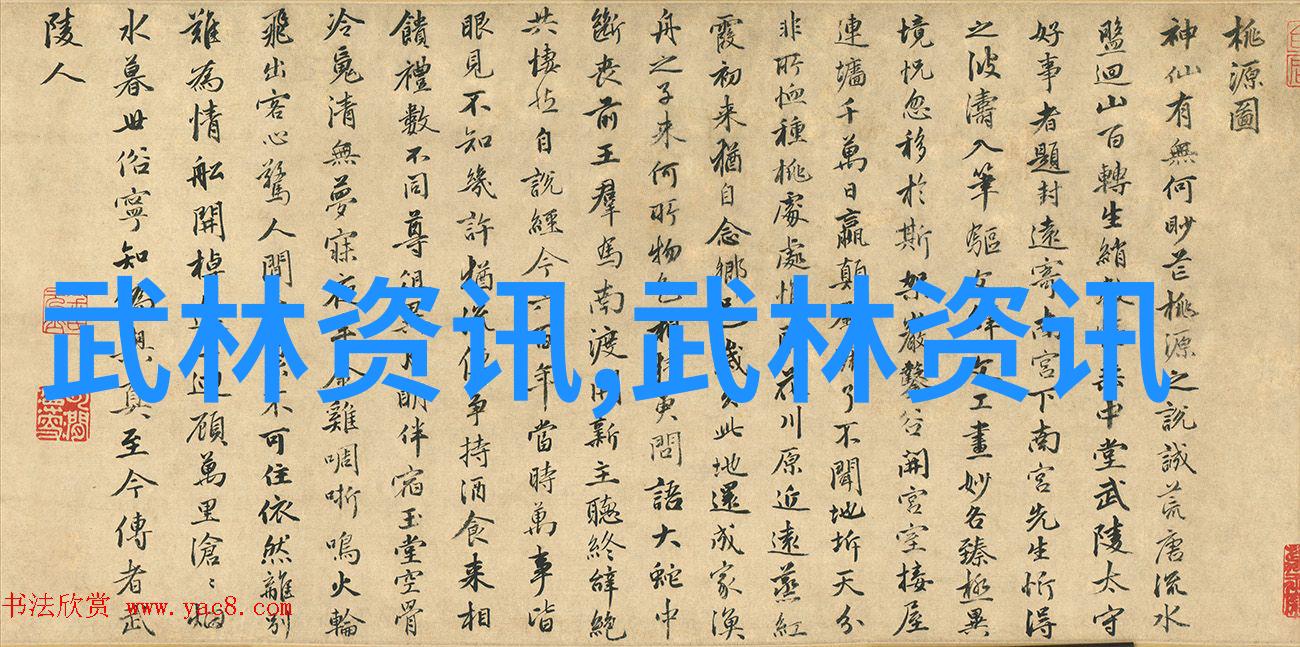 武林资讯,武林资讯
桃源圖
神仙有無何眇茫桃源之說誠荒唐流水
盤迴山百轉生綃數幅垂中堂武陵太守
好事者題封遠寄南宮下南宮先生忻得
之波濤入筆驅文辭文工畫妙各臻極異
境恍忽移於斯架巖鑿谷開宮室接屋
連墻千萬日嬴顛了不聞地坼天分
非所恤種桃處處惟開花川原近遠蒸紅
霞初來猶自念鄉邑歲久此地還成家漁
舟之子來何所物色相猜更問語大蛇中
斷喪前王羣馬南渡開新主聽終辭絕
共悽然自說經今六百年當時萬事皆
眼見不知幾許猶流傳爭持酒食來相
饋禮數不同尊俎異月明伴宿玉堂空骨
冷魂清無夢寐夜半金雞啁哳鳴火輪
飛出客心驚人間不可住依然離別
難為情船開棹迴顧萬里滄〻烟
水暮世俗寧知偽與真至今傳者武
陵人
书法欣赏 www.yac8.com